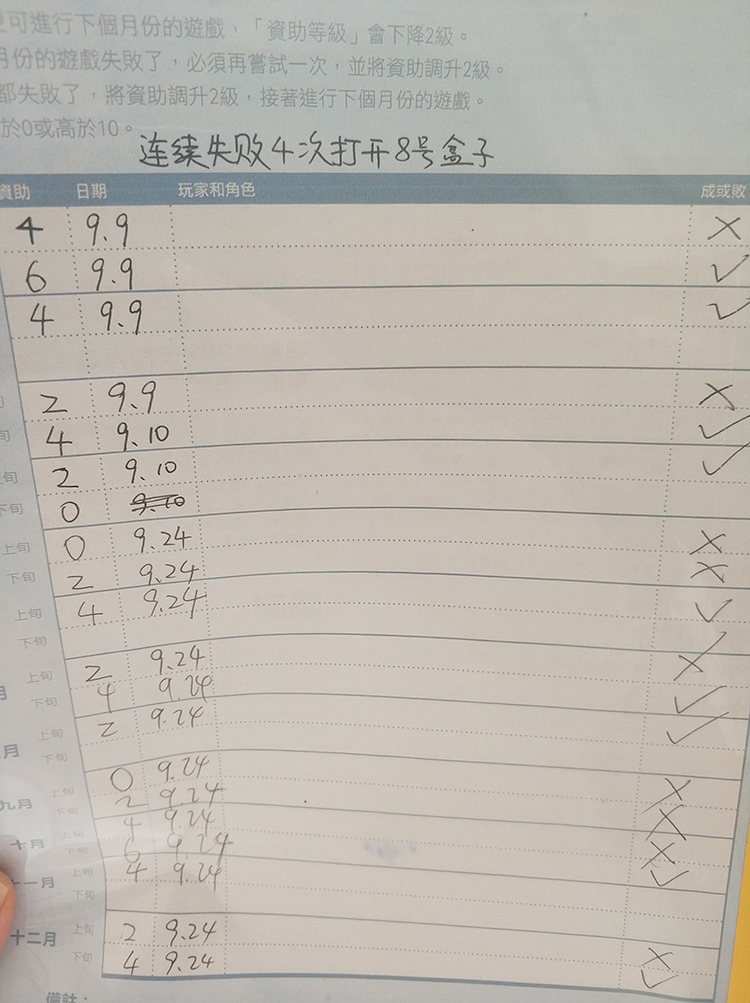 可進行下個月份的遊戲，「資助等級」會下降2級。
月份的遊戲失敗了，必須再嘗試一次，並將資助調升2級。
都失敗了，將資助調升2級，接著進行下個月份的遊戲。
於0或高於10。
连续失败4次打开8号盒子
資助 日期 玩家和角色 成或敗
4 9.9 ×
6 9.9 ✓
4 9.9 ✓
2 9.9 ×
4 9.10 ✓
上旬 2 9.10 ✓
下旬 0 9.10
上旬 0 9.24 ×
下旬 2 9.24 ×
上旬 4 9.24 ✓
下旬
上旬 2 9.24 ×
月 下旬 4 9.24 ✓
上旬 2 9.24 ✓
月 下旬
上旬 0 9.24 ×
九月 下旬 2 9.24 ×
上旬 4 9.24 ×
十月 下旬 6 9.24 ✓
十一月 上旬 4 9.24
下旬
十二月 上旬 2 9.24 ×
下旬 4 9.24 ✓
備註：